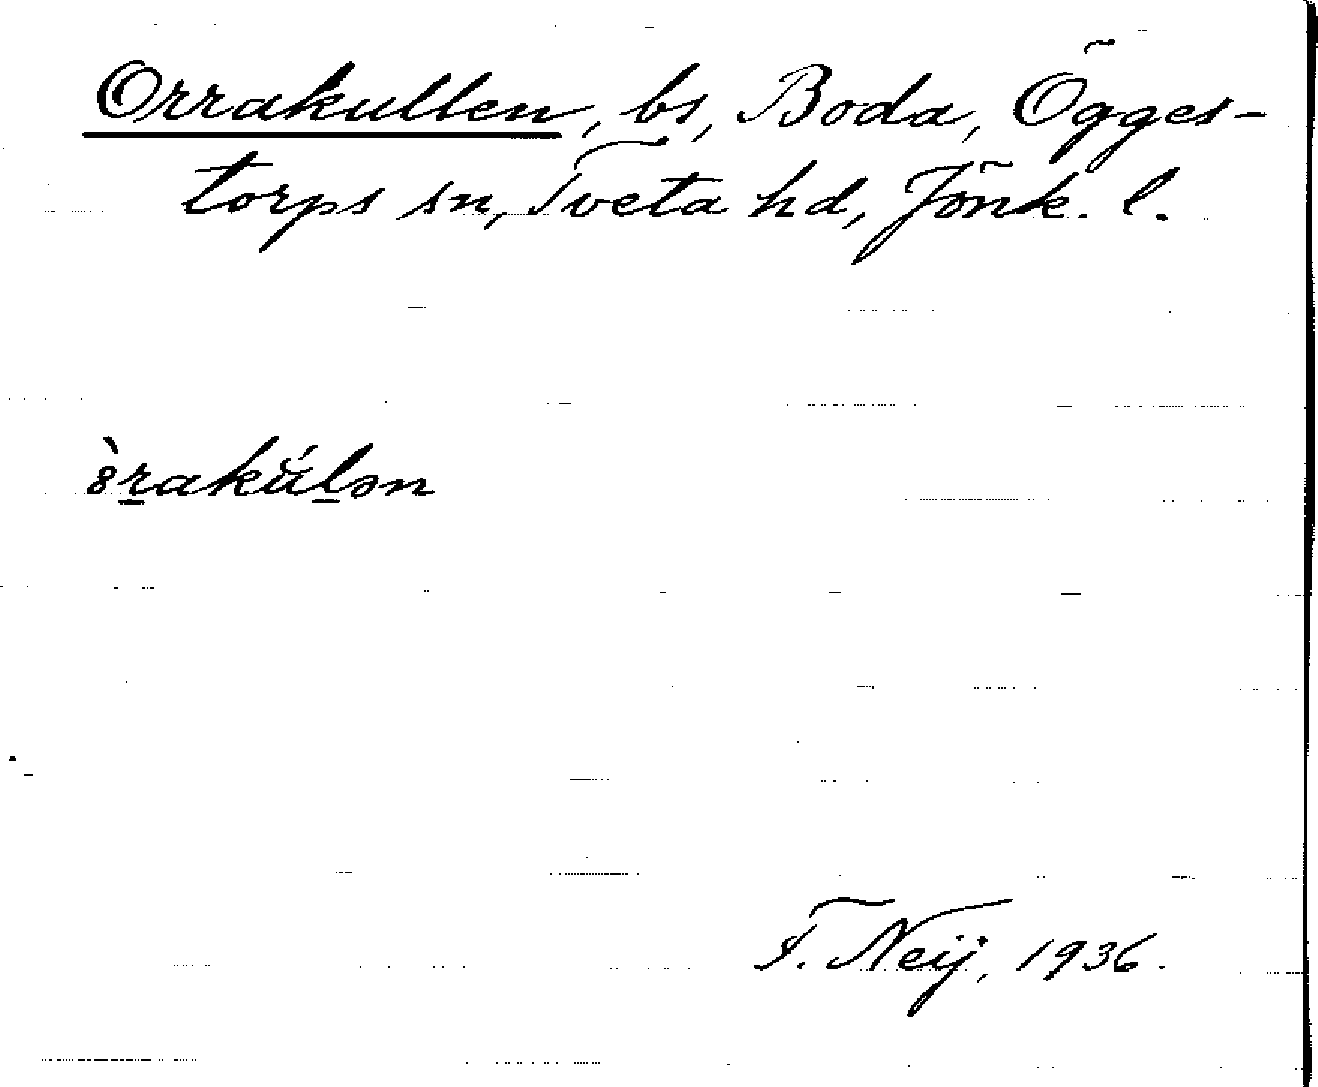 Orrakullen, bs, Boda, Ögges-
torps sn, Tveta hd, Jönk. l.
F. Neij, 1936.